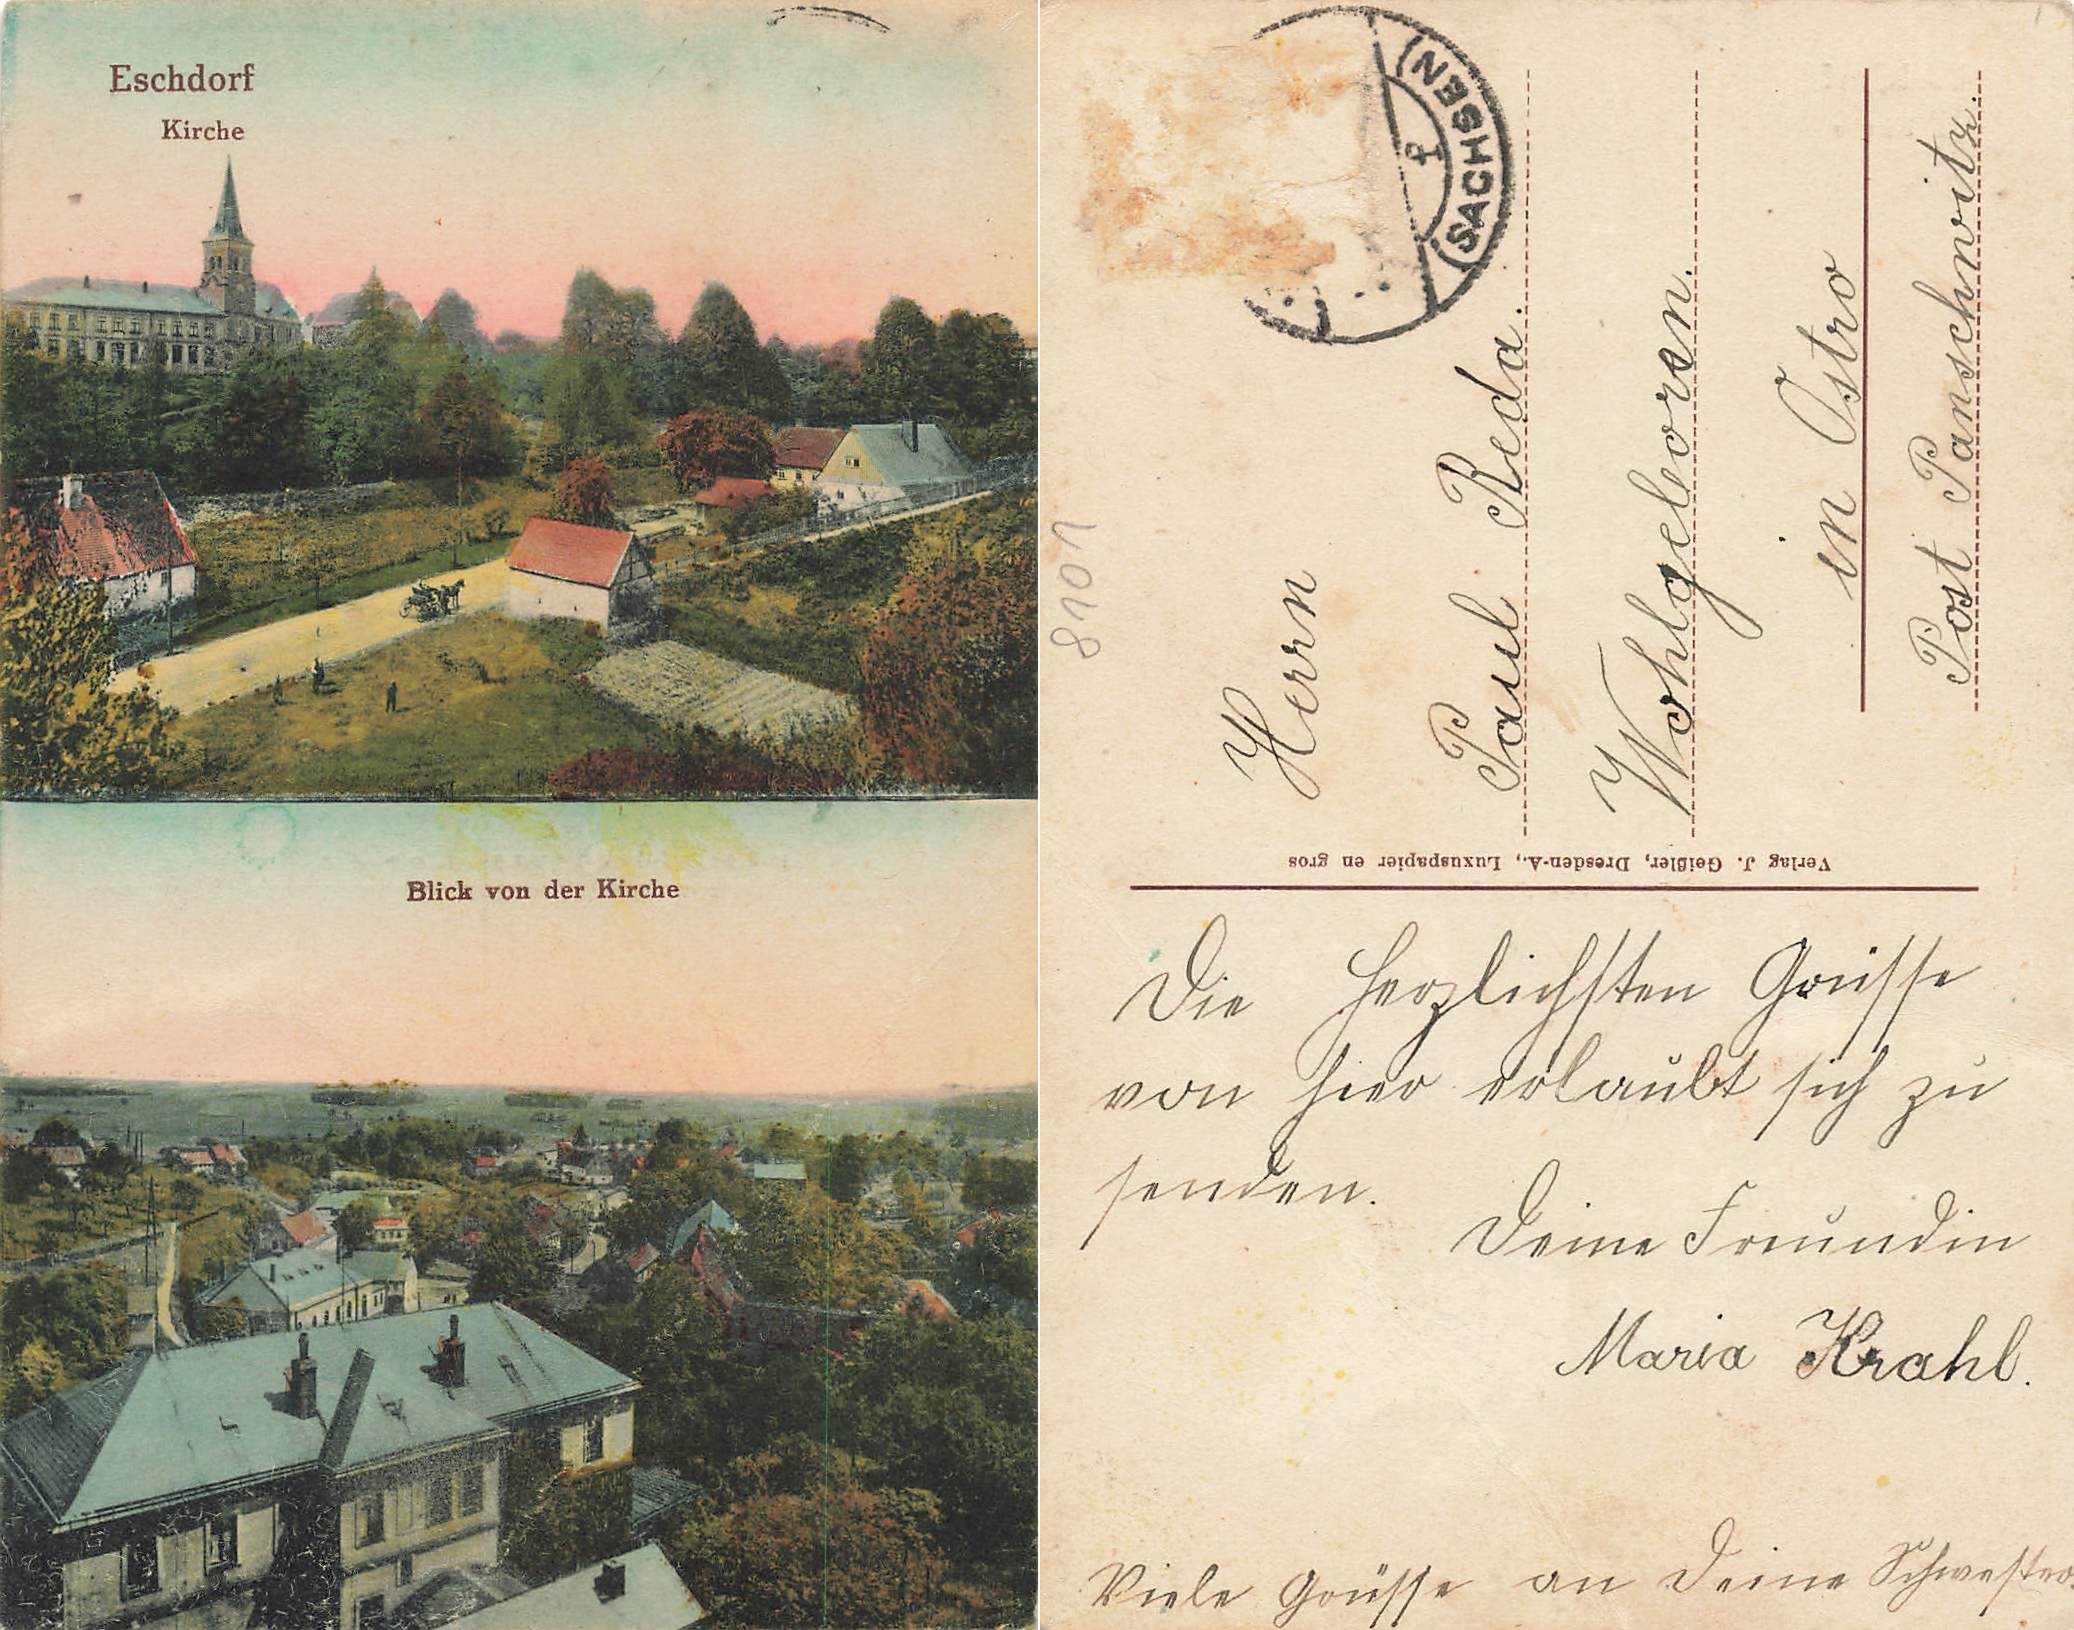 Eschdorf
Kirche
Blick von der Kirche
(SACHSEN)
f
8101
Herrn
Paul Reda.
Wohlgeboren.
in Ostro
Post Panschwitz.
Verlag J. Geißler, Dresden-A., Luxuspapier en gros
Die herzlichsten Grüsse
von hier erlaubt sich zu
senden.
Deine Freundin
Maria Krahl.
Viele Grüsse an Deine Schwester.